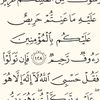 عَلَيْهِ مَا عَنِتُّمْ حَرِيصٌ
عَلَيْكُم بِالْمُؤْمِنِينَ
رَءُوفٌ رَّحِيمٌ ١٢٨ فَإِن تَوَلَّوْا
فَقُلْ حَسْبِيَ اللَّهُ لَا إِلَٰهَ إِلَّا هُوَ